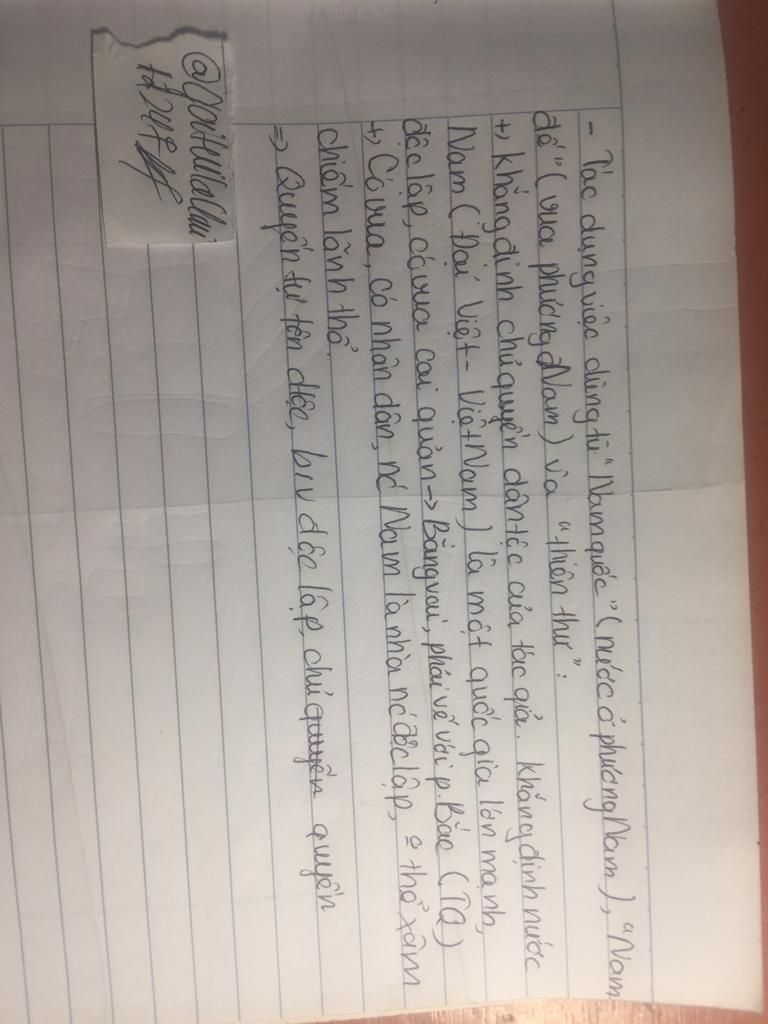 - Tác dụng việc dùng từ "Nam quốc" (nước ở phương Nam), "Nam
đế" (vua phương Nam) và "thiên thư":
+, Khẳng định chủ quyền dân tộc của tác giả. Khẳng định nước
Nam (Đại Việt - Việt Nam) là một quốc gia lớn mạnh,
độc lập, có vua cai quản -> Bằng vai, phải vế với p. Bắc (TQ)
+, Có vua, có nhân dân, nc Nam là nhà nc độc lập, thể xâm
chiếm lãnh thổ.
=> Quyền tự tôn dtộc, độc lập, chủ quyền quyền